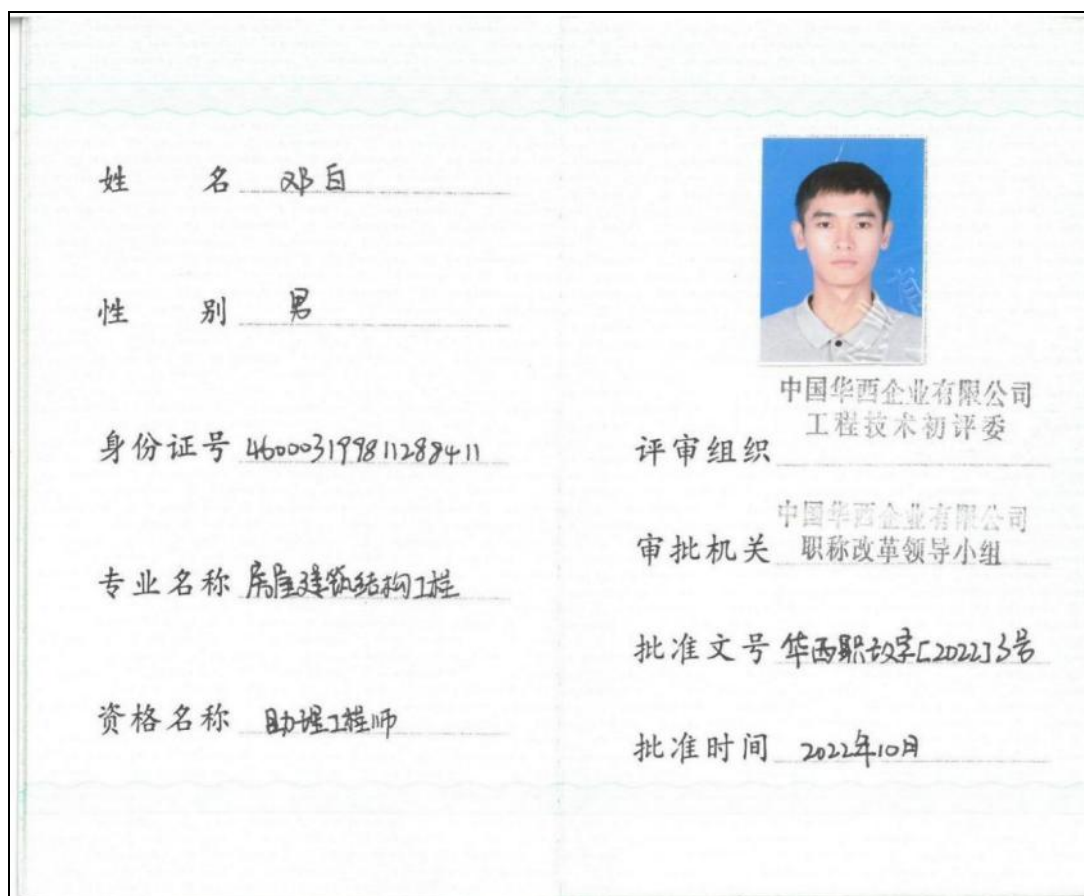 姓名 邓自
性别 男
身份证号 460003199811288411
专业名称 房屋建筑结构工程
资格名称 助理工程师
中国华西企业有限公司
工程技术初评委
评审组织
中国华西企业有限公司
审批机关 职称改革领导小组
批准文号 华西职改字[2022]3号
批准时间 2022年10月